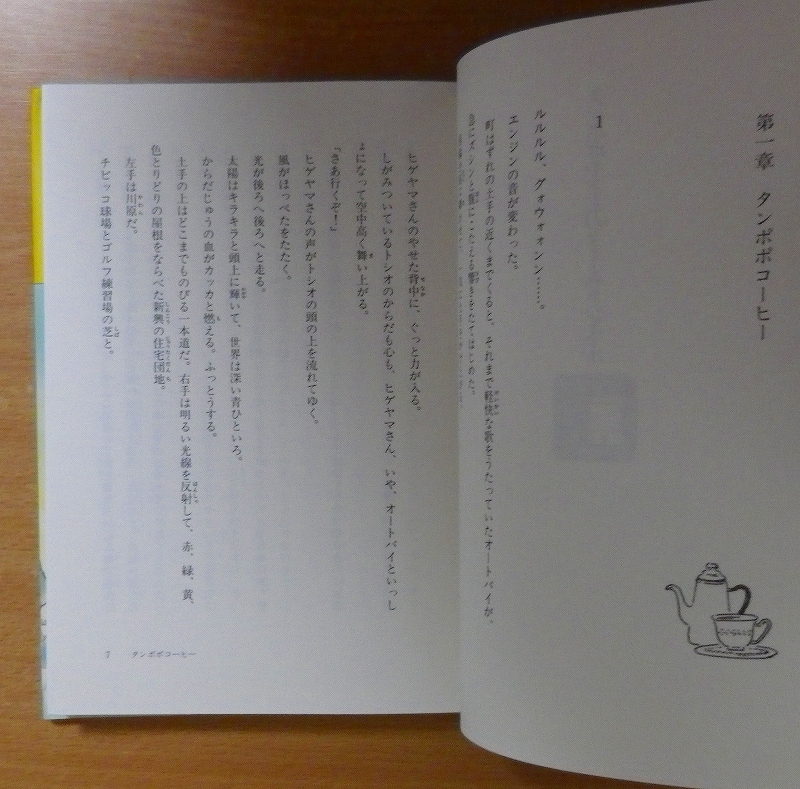 第一章 タンポポコーヒー
1
ルルルル、グォウォォンン……。
エンジンの音が変わった。
町はずれの土手の近くまでくると、それまで軽快な歌をうたっていたオートバイが、
急にズシンと腹にこたえる響きをたてはじめた。
ヒゲヤマさんのやせた背中に、ぐっと力が入る。
しがみついているトシオのからだも心も、ヒゲヤマさん、いや、オートバイといっし
ょになって空中高く舞い上がる。
「さあ行くぞ！」
ヒゲヤマさんの声がトシオの頭の上を流れてゆく。
風がほっぺたをたたく。
光が後ろへ後ろへと走る。
太陽はキラキラと頭上に輝いて、世界は深い青ひといろ。
からだじゅうの血がカッカと燃える。ふっとうする。
土手の上はどこまでものびる一本道だ。右手は明るい光線を反射して、赤、緑、黄、
色とりどりの屋根をならべた新興の住宅団地。
左手は川原だ。
チビッコ球場とゴルフ練習場の芝と。
7 タンポポコーヒー